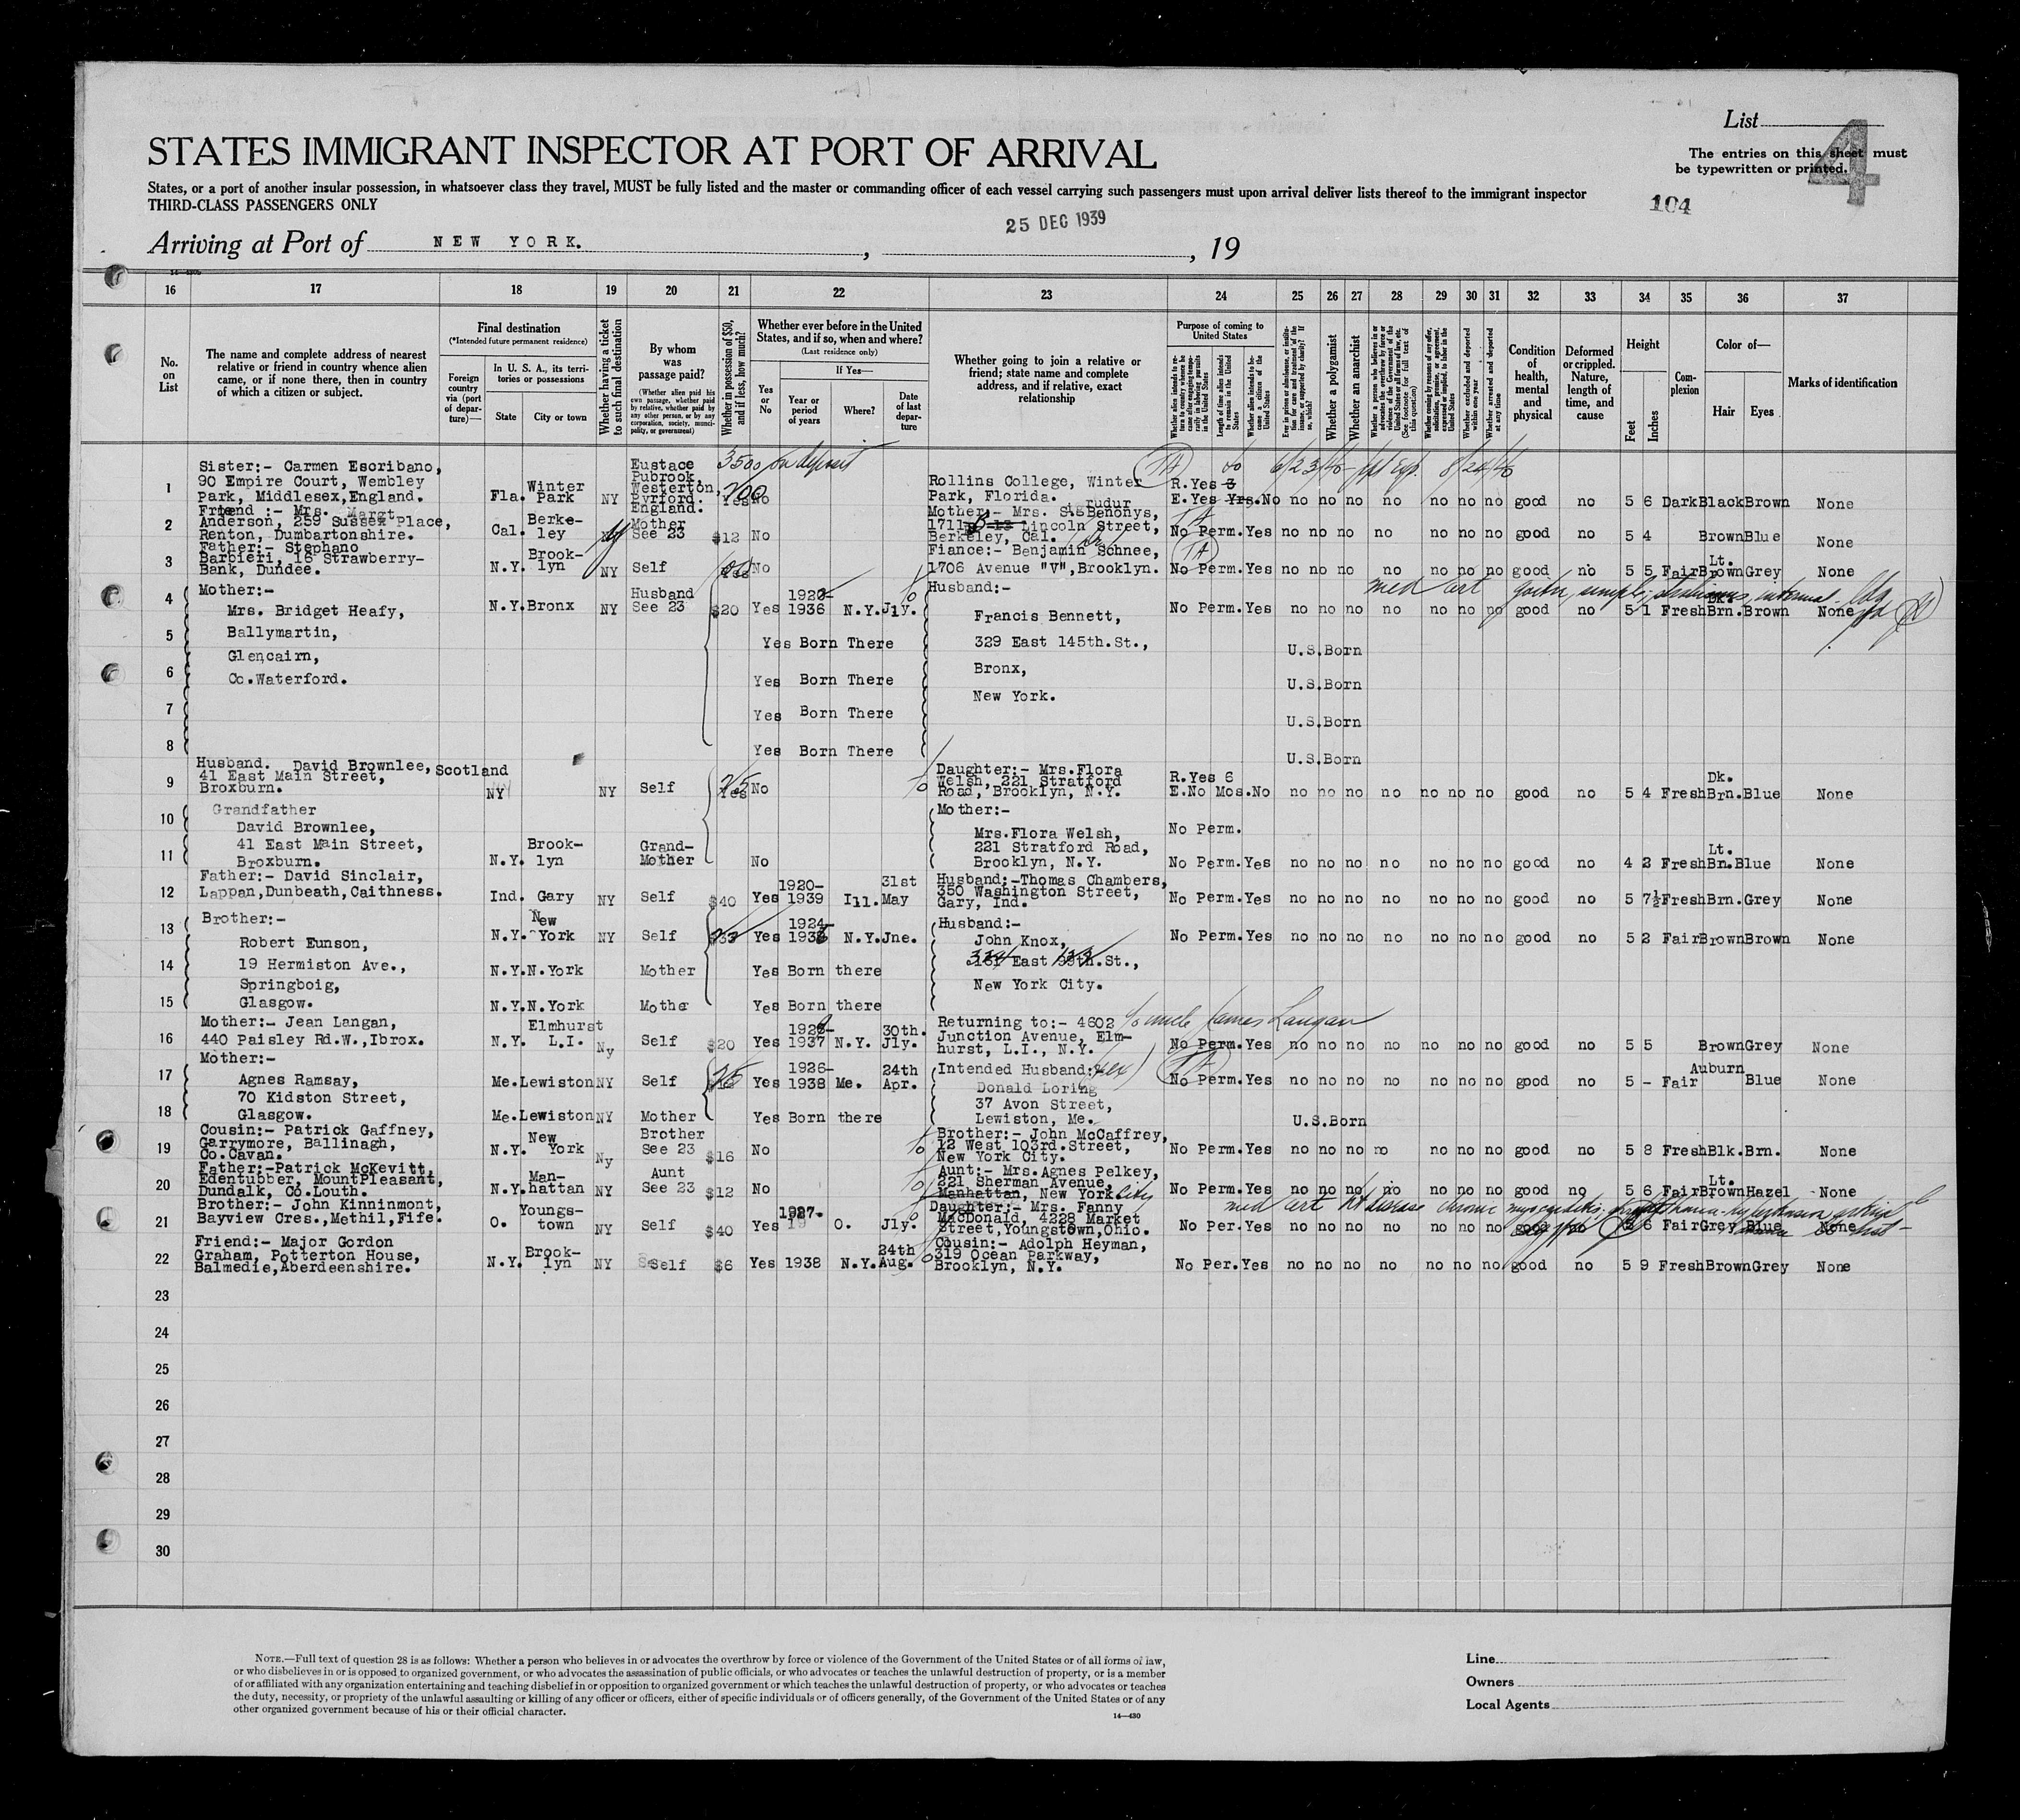 List
4
STATES IMMIGRANT INSPECTOR AT PORT OF ARRIVAL
The entries on this sheet must
be typewritten or printed.
States, or a port of another insular possession, in whatsoever class they travel, MUST be fully listed and the master or commanding officer of each vessel carrying such passengers must upon arrival deliver lists thereof to the immigrant inspector
THIRD-CLASS PASSENGERS ONLY
104
25 DEC 1939
Arriving at Port of NEW YORK. , , 19
16 17 18 19 20 21 22 23 24 25 26 27 28 29 30 31 32 33 34 35 36 37
No. on List
The name and complete address of nearest relative or friend in country whence alien came, or if none there, then in country of which a citizen or subject.
Final destination
(*Intended future permanent residence)
Foreign country via (port of departure)—
In U. S. A., its territories or possessions
State City or town
Whether having a ticket to such final destination
By whom was passage paid?
(Whether alien paid his own passage, whether paid by relative, whether paid by any other person, or by any corporation, society, municipality, or government)
Whether in possession of $50, and if less, how much?
Whether ever before in the United States, and if so, when and where?
(Last residence only)
Yes or No
If Yes—
Year or period of years
Where?
Date of last departure
Whether going to join a relative or friend; state name and complete address, and if relative, exact relationship
Purpose of coming to United States
Length of time alien intends to remain in the United States
Whether alien intends to become a citizen of the United States
Whether a polygamist
Whether an anarchist
Whether excluded and deported within one year
Whether arrested and deported at any time
Condition of health, mental and physical
Deformed or crippled. Nature, length of time, and cause
Height
Feet Inches
Complexion
Color of—
Hair Eyes
Marks of identification
3500 on deposit
1 Sister:- Carmen Escribano,
90 Empire Court, Wembley
Park, Middlesex,England.
Fla. Winter Park NY
Eustace
Pubrook,
Westerton,
Pyrford.
England.
200 Yes No
Rollins College, Winter
Park, Florida.
R.Yes 3
E.Yes Yrs.No no no no no no no no good no 5 6 Dark Black Brown None
2 Friend :- Mrs. Margt.
Anderson, 259 Sussex Place,
Renton, Dumbartonshire.
Cal. Berke-ley
Mother
See 23 $12 No
Mother:- Mrs. Sigrudur Benonys,
1711 Lincoln Street,
Berkeley, Cal.
No Perm.Yes no no no no no no no good no 5 4 Brown Blue None
3 Father:- Stephano
Barbieri, 16 Strawberry-
Bank, Dundee.
N.Y. Brook-lyn NY Self Yes No
Fiance:- Benjamin Schnee,
1706 Avenue "V",Brooklyn.
No Perm.Yes no no no no no no no good no 5 5 Fair Lt. Brown Grey None
4 Mother:-
Mrs. Bridget Heafy,
Ballymartin,
Glencairn,
Co.Waterford.
N.Y. Bronx NY Husband
See 23 $20 Yes 1936 N.Y. Jly.
Husband:-
Francis Bennett,
329 East 145th.St.,
Bronx,
New York.
No Perm.Yes no no no no no no no good no 5 1 Fresh Dk. Brn. Brown None
5 Yes Born There U.S.Born
6 Yes Born There U.S.Born
7 Yes Born There U.S.Born
8 Yes Born There U.S.Born
9 Husband. David Brownlee,
41 East Main Street,
Broxburn.
Scotland
NY NY Self Yes No
Daughter:- Mrs.Flora
Welsh, 221 Stratford
Road, Brooklyn, N.Y.
R.Yes 6
E.No Mos.No no no no no no no no good no 5 4 Fresh Dk. Brn. Blue None
10 Grandfather
David Brownlee,
41 East Main Street,
Broxburn.
Mother:-
Mrs.Flora Welsh,
221 Stratford Road,
Brooklyn, N.Y.
No Perm.
11 N.Y. Brook-lyn Grand-Mother No
No Perm.Yes no no no no no no no good no 4 2 Fresh Lt. Bn. Blue None
12 Father:- David Sinclair,
Lappan,Dunbeath,Caithness.
Ind. Gary NY Self $40 Yes 1920-1939 Ill. 31st May
Husband:-Thomas Chambers,
350 Washington Street,
Gary, Ind.
No Perm.Yes no no no no no no no good no 5 7½ Fresh Brn. Grey None
13 Brother:-
Robert Eunson,
19 Hermiston Ave.,
Springboig,
Glasgow.
N.Y. New York NY Self Yes 1924- N.Y. Jne.
Husband:-
John Knox,
East St.,
New York City.
No Perm.Yes no no no no no no no good no 5 2 Fair Brown Brown None
14 N.Y. N.York Mother Yes Born there
15 N.Y. N.York Mothe Yes Born there
16 Mother:- Jean Langan,
440 Paisley Rd.W.,Ibrox.
N.Y. Elmhurst L.I. Ny Self $20 Yes 1937 N.Y. 30th. Jly.
Returning to:- 4602
Junction Avenue, Elm-
hurst, L.I., N.Y.
to uncle James Langan
No Perm.Yes no no no no no no no good no 5 5 Brown Grey None
17 Mother:-
Agnes Ramsay,
70 Kidston Street,
Glasgow.
Me. Lewiston NY Self Yes 1926-1938 Me. 24th Apr.
Intended Husband:-
Donald Loring
37 Avon Street,
Lewiston, Me.
No Perm.Yes no no no no no no no good no 5 - Fair Auburn Blue None
18 Me. Lewiston NY Mother Yes Born there U.S.Born
19 Cousin:- Patrick Gaffney,
Garrymore, Ballinagh,
Co.Cavan.
N.Y. New York Ny Brother
See 23 $16 No
Brother:- John McCaffrey,
12 West 103rd.Street,
New York City.
No Perm.Yes no no no no no no no good no 5 8 Fresh Blk. Brn. None
20 Father:-Patrick McKevitt,
Edentubber, MountPleasant,
Dundalk, Co.Louth.
N.Y. Man-hattan NY Aunt
See 23 $12 No
Aunt:- Mrs.Agnes Pelkey,
221 Sherman Avenue,
Manhattan, New York City
No Perm.Yes no no no no no no no good no 5 6 Fair Lt. Brown Hazel None
21 Brother:- John Kinninmont,
Bayview Cres.,Methil,Fife.
O. Youngs-town NY Self $40 Yes 1927- O. Jly.
Daughter:- Mrs. Fanny
MacDonald, 4228 Market
Street,Youngstown,Ohio.
No Per.Yes no no no no no no no good 6 Fair Grey Blue None
22 Friend:- Major Gordon
Graham, Potterton House,
Balmedie,Aberdeenshire.
N.Y. Brook-lyn NY Self $6 Yes 1938 N.Y. 24th Aug.
Cousin:- Adolph Heyman,
319 Ocean Parkway,
Brooklyn, N.Y.
No Per.Yes no no no no no no no good no 5 9 Fresh Brown Grey None
23
24
25
26
27
28
29
30
NOTE.—Full text of question 28 is as follows: Whether a person who believes in or advocates the overthrow by force or violence of the Government of the United States or of all forms of law,
or who disbelieves in or is opposed to organized government, or who advocates the assassination of public officials, or who advocates or teaches the unlawful destruction of property, or is a member
of or affiliated with any organization entertaining and teaching disbelief in or opposition to organized government or which teaches the unlawful destruction of property, or who advocates or teaches
the duty, necessity, or propriety of the unlawful assaulting or killing of any officer or officers, either of specific individuals or of officers generally, of the Government of the United States or of any
other organized government because of his or their official character.
14—430
Line
Owners
Local Agents